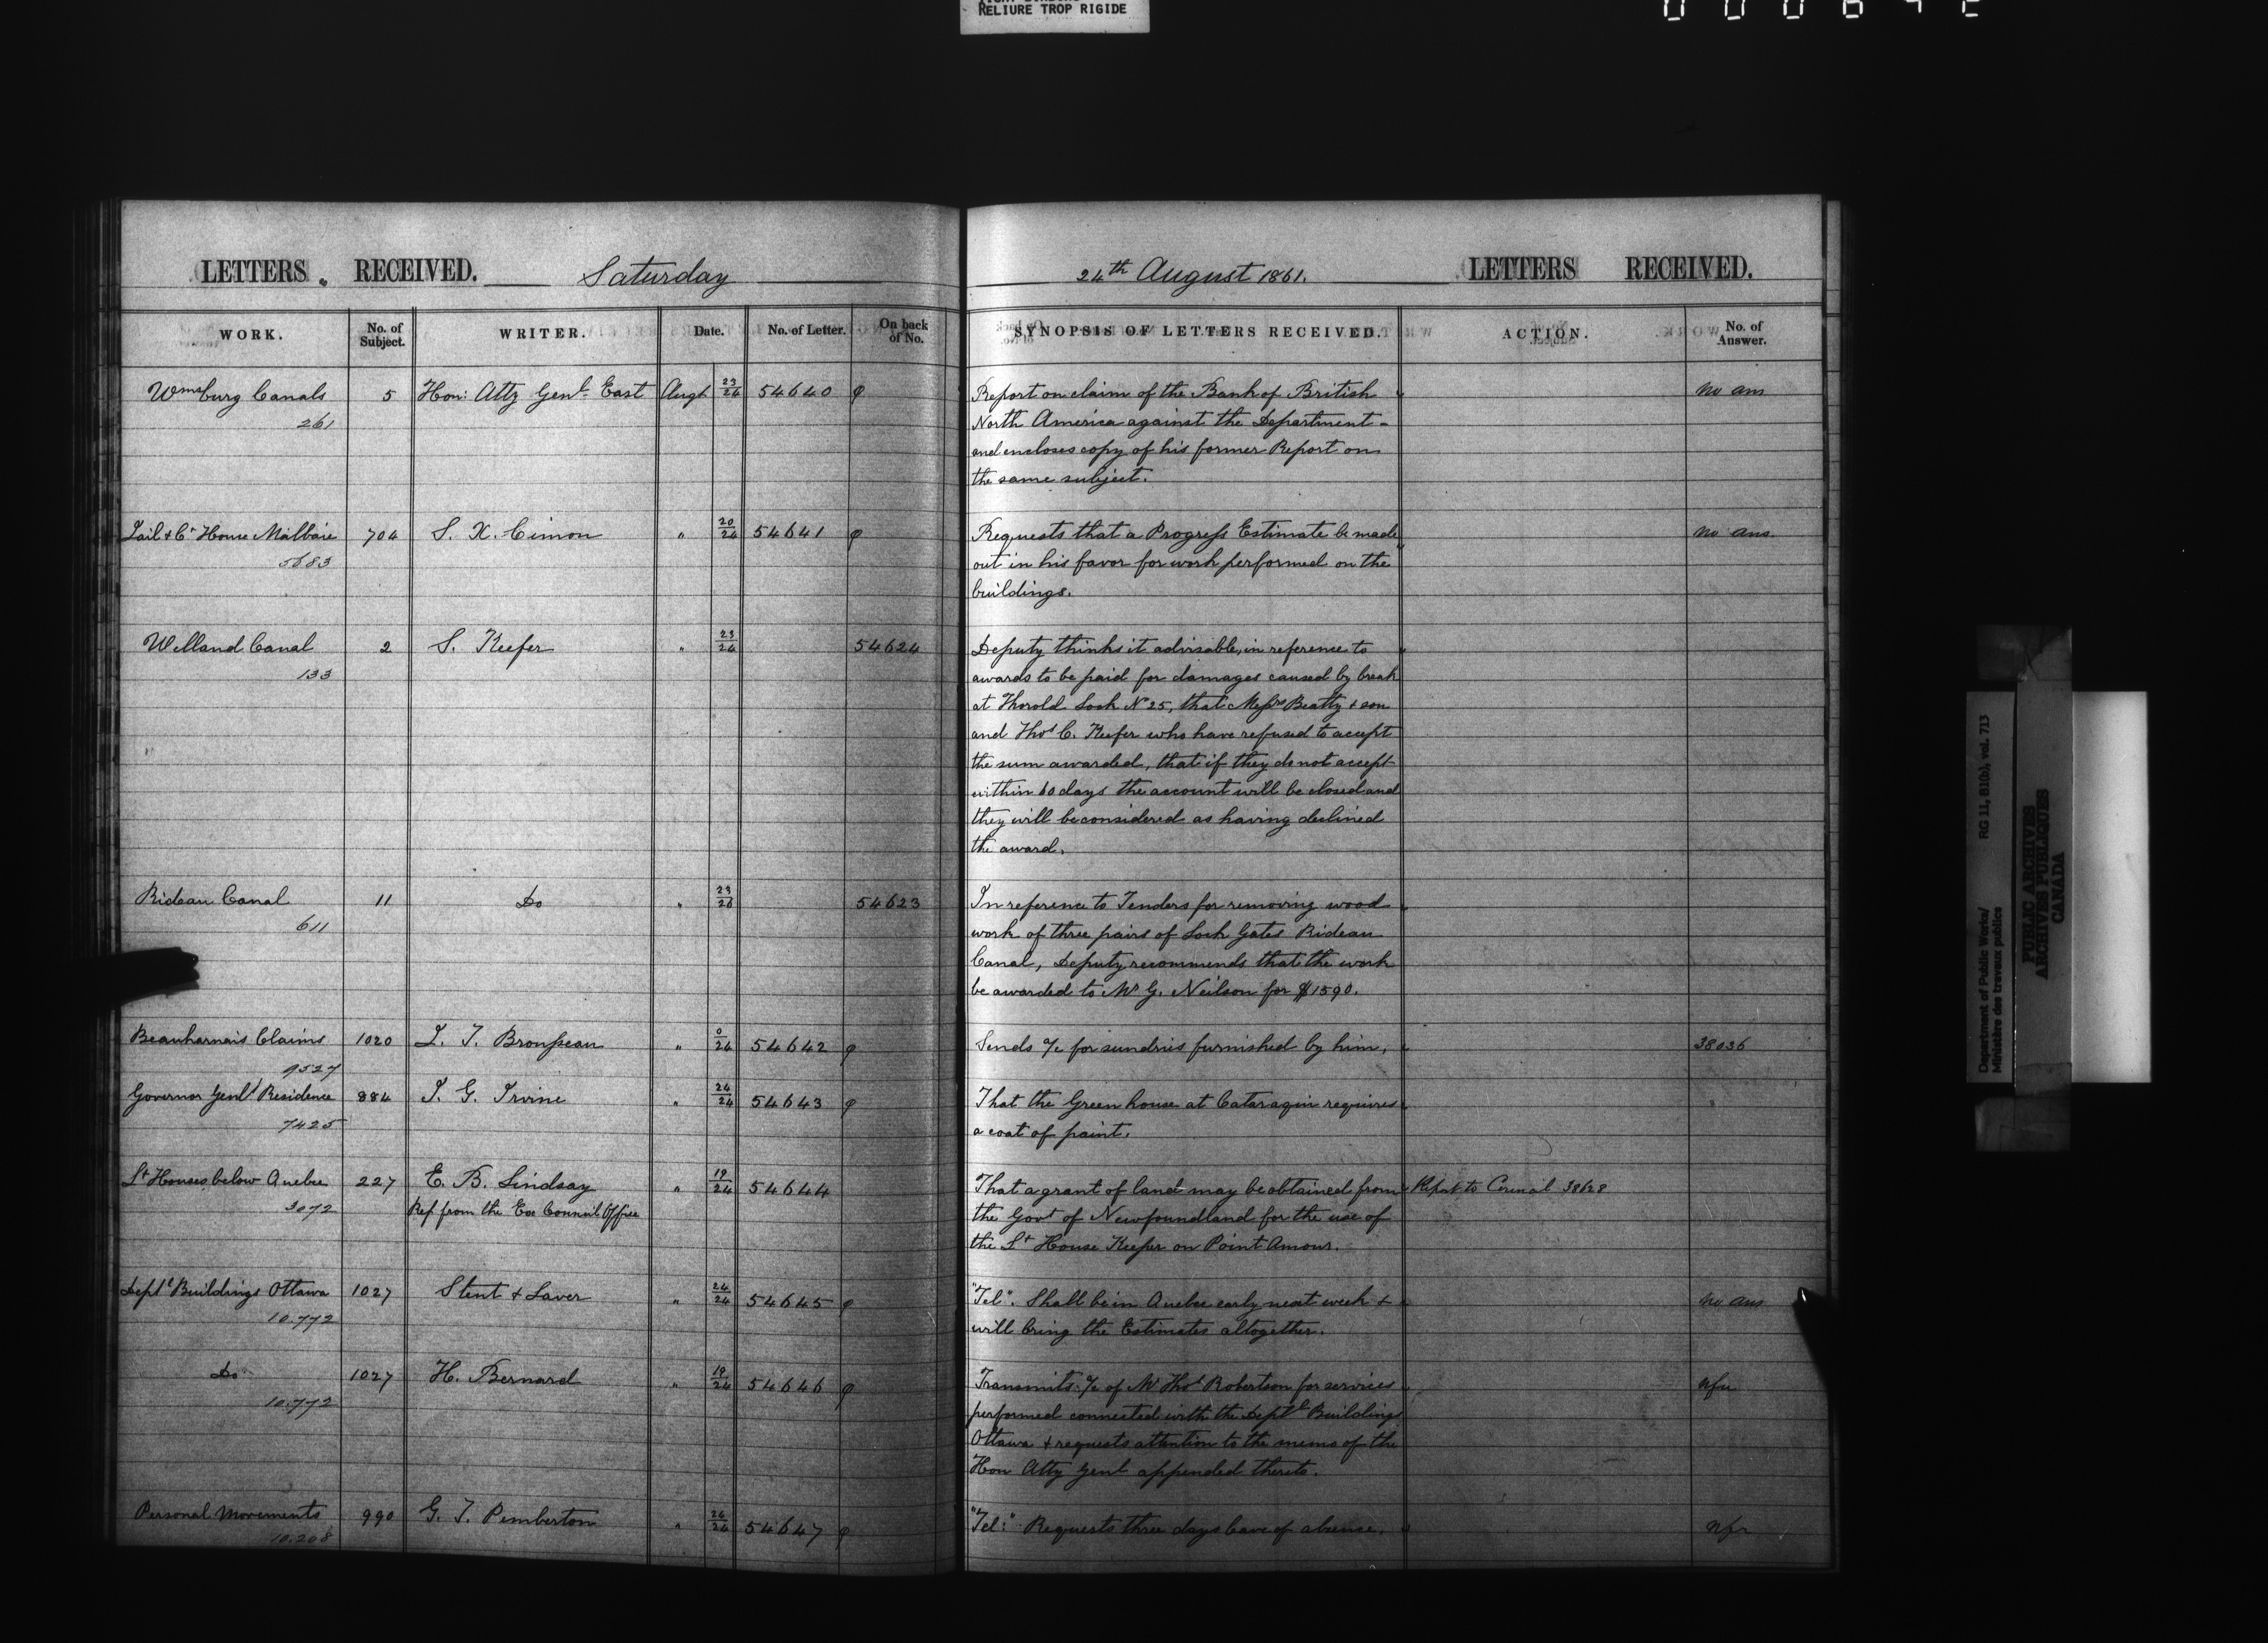 RELIURE TROP RIGIDE
LETTERS RECEIVED. Saturday
24th August 1861. LETTERS RECEIVED.
WORK. No. of Subject. WRITER. Date. No. of Letter. On back of No.
SYNOPSIS OF LETTERS RECEIVED. ACTION. No. of Answer.
Wmsburg Canals 5 Hon: Atty Genl East Augt 23/24 54640 φ
261
Report on claim of the Bank of British No ans
North America against the Department -
and encloses copy of his former Report on
the same subject.
Jail & Ct House Malbaie 704 S. X. Cimon " 20/24 54641 φ
5683
Requests that a Progress Estimate be made No ans
out in his favor for work performed on the
buildings.
Welland Canal 2 S. Keefer " 23/24 54624
133
Deputy thinks it advisable, in reference to
awards to be paid for damages caused by break
at Thorold Lock No 25, that Messrs Beatty & son
and Thos C. Keefer who have refused to accept
the sum awarded, that if they do not accept
within 60 days the account will be closed and
they will be considered as having declined
the award.
Rideau Canal 11 Do " 54623
611
In reference to Tenders for removing wood
work of three pairs of Lock Gates Rideau
Canal, Deputy recommends that the work
be awarded to Mr G. Neilson for $1590.
Beauharnais Claims 1020 " 0/24 54642 φ
9527
Sends a/c for sundries furnished by him, 38036
Governor Genls Residence 884 Irvine " 24/24 54643 φ
7425
That the Green house at Cataraqui requires
a coat of paint.
Lt Houses below Quebec 227 E. B. Lindsay " 19/24 54644
3072 Ref from the Exe Council Office
That a grant of land may be obtained from Report to Council 38628
the Govt of Newfoundland for the use of
the Lt House Keeper on Point Amour.
Deptl Buildings Ottawa 1027 Stent & Laver " 24/24 54645 φ
10.772
"Tel". Shall be in Quebec early next week & No ans
will bring the Estimates altogether.
Do 1027 H. Bernard " 19/24 54646 φ
10.772
Transmits a/c of Mr Thos Robertson for services
performed connected with the Deptl Buildings
Ottawa & requests attention to the memo of the
Hon Atty Genl appended thereto.
Personal Movements 990 G. T. Pemberton " 24/24 54647 φ
10.208
"Tel:" Requests three days leave of absence.
Department of Public Works/ RG 11, B1(b), vol. 713
Ministère des travaux publics
PUBLIC ARCHIVES
ARCHIVES PUBLIQUES
CANADA